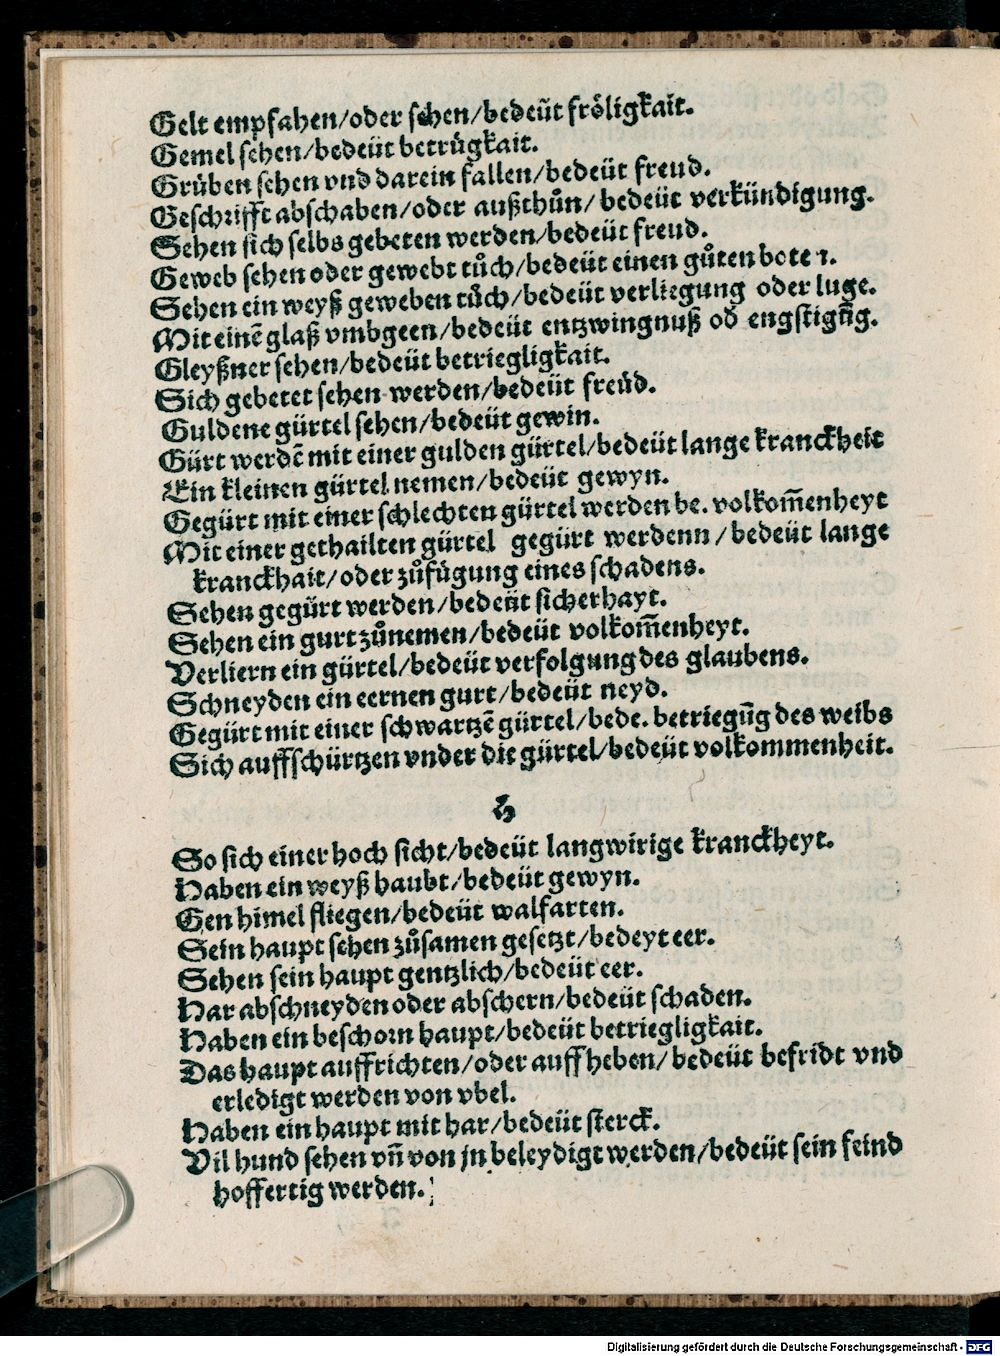 Gelt empfahen/oder sehen/bedeüt fröligkait.
Gemel sehen/bedeüt betrügkait.
Grüben sehen vnd darein fallen/bedeüt freud.
Geschrifft abschaben/oder außthůn/ bedeüt verkündigung.
Sehen sich selbs gebeten werden/bedeüt freud.
Geweb sehen oder gewebt tůch/bedeüt einen gůten boten.
Sehen ein weyß geweben tůch/bedeüt verliegung oder luge.
Mit einē glaß vmbgeen/bedeüt entzwingnuß od engstigūg.
Gleyßner sehen/bedeüt betriegligkait.
Sich gebetet sehen werden/bedeüt freüd.
Guldene gürtel sehen/bedeüt gewin.
Gürt werdē mit einer gulden gürtel/bedeüt lange kranckheit
Ein kleinen gürtel nemen/bedeüt gewyn.
Gegürt mit einer schlechten gürtel werden be. volkom̄enheyt
Mit einer gethailten gürtel gegürt werdenn/bedeüt lange
kranckhait/oder zůfügung eines schadens.
Sehen gegürt werden/bedeüt sicherhayt.
Sehen ein gurt zůnemen/bedeüt volkom̄enheyt.
Verliern ein gürtel/bedeüt verfolgung des glaubens.
Schneyden ein eernen gurt/bedeüt neyd.
Gegürt mit einer schwartzē gürtel/bede. betriegūg des weibs
Sich auffschürtzen vnder die gürtel/bedeüt volkommenheit.
H
So sich einer hoch sicht/bedeüt langwirige kranckheyt.
Haben ein weyß haubt/bedeüt gewyn.
Gen himel fliegen/bedeüt walfarten.
Sein haupt sehen zůsamen gesetzt/bedeyt eer.
Sehen sein haupt gentzlich/bedeüt eer.
Har abschneyden oder abschern/bedeüt schaden.
Haben ein beschorn haupt/bedeüt betriegligkait.
Das haupt auffrichten/oder auffheben/ bedeüt befridt vnd
erledigt werden von vbel.
Haben ein haupt mit har/bedeüt sterck.
Vil hund sehen vn̄ von jn beleydigt werden/bedeüt sein feind
hoffertig werden.
Digitalisierung gefördert durch die Deutsche Forschungsgemeinschaft - DFG